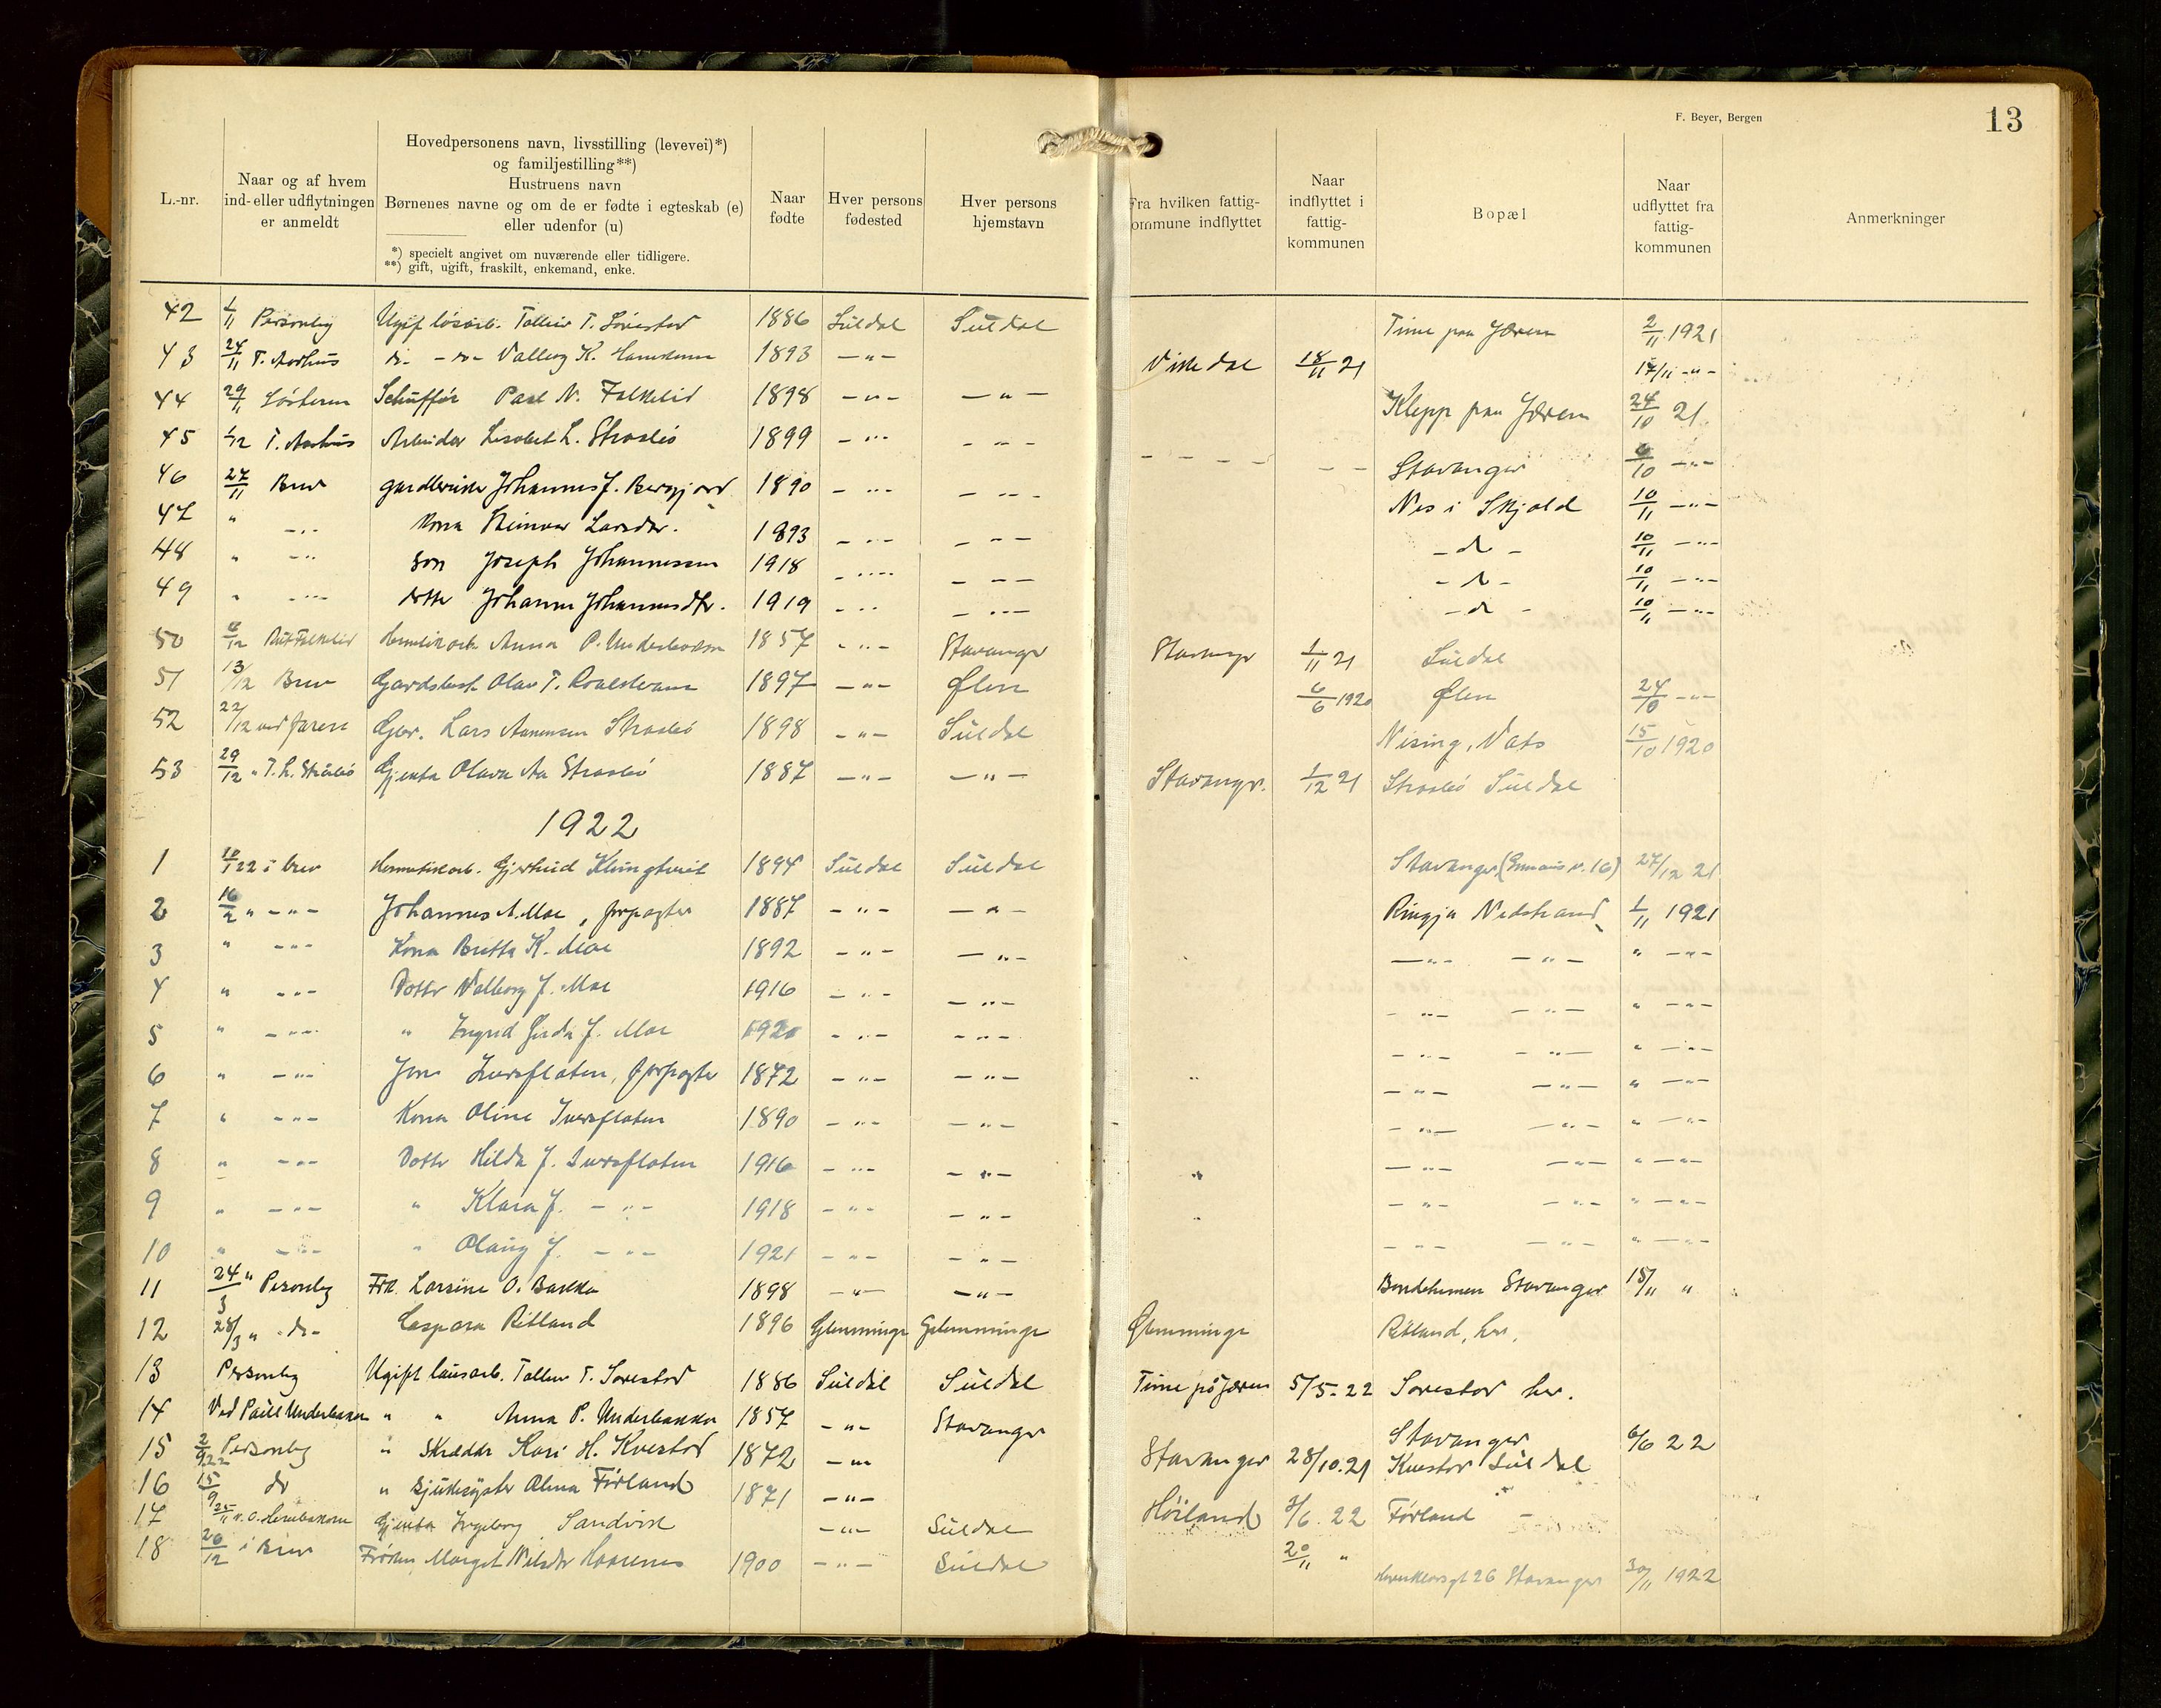 F. Beyer, Bergen
13
L.-nr.
Naar og af hvem ind- eller udflytningen er anmeldt
Hovedpersonens navn, livsstilling (levevei)*)
og familjestilling**)
Hustruens navn
Børnenes navne og om de er fødte i egteskab (e)
eller udenfor (u)
*) specielt angivet om nuværende eller tidligere.
**) gift, ugift, fraskilt, enkemand, enke.
Naar fødte
Hver persons fødested
Hver persons hjemstavn
Fra hvilken fattig-
kommune indflyttet
Naar indflyttet i fattig-kommunen
Bopæl
Naar udflyttet fra fattig-kommunen
Anmerkninger
42 1/11 Personleg Ugift lösarb. T. Sörestad 1886 Suldal Suldal Time paa Jæren 2/11 1921
43 24/11 T. Aarhus do - do - Valborg K. 1893 -"- Vikedal 18/11 21 17/11 -"-
44 29/11 Schufför Paul N. Falkeid 1898 -"- -"- Klepp paa Jæren 24/10 21
45 1/12 T. Aarhus Arbeider L. Straabö 1899 -"- -"- Stavanger 6/10 -"-
46 27/11 Brev Johannes J. 1890 -"- -"- Nes i Skjold 10/11 -"-
47 " -"- Kona Larsdtr. 1893 -"- -"- - do - 10/11 -"-
48 " -"- Son Joseph Johannessen 1918 -"- -"- - do - 10/11 -"-
49 " -"- dotter Johanna Johannesdtr. 1919 -"- -"- - do - 10/11 -"-
50 6/12 Falkeid Anna P. Underbakka 1857 -"- Stavanger Stavanger 1/11 21 Suldal
51 13/12 Brev Olav T. Roaldkvam 1897 -"- Ølen 6/6 1920 Ølen 24/10 -"-
52 22/12 ved faren Lars Aanensen Straabö 1898 -"- Suldal Vats 15/10 1920
53 29/12 " T. L. Straabö Gjenta Olava Aa Straabö 1887 -"- -"- Stavanger 1/12 21 Straabö Suldal
1922
1 22 i brev Hermetikarb. Gjertrud Klungtveit 1894 Suldal Suldal Stavanger 27/12 21
2 16/2 " -"- Johannes A. Moe, forpagter 1887 -"- -"- Nedstrand 1/11 1921
3 " -"- Kona Britta K. Moe 1892 -"- -"- -"- -"- " -"-
4 " -"- Dotter Valborg J. Moe 1916 -"- -"- -"- -"- " -"-
5 " -"- " Ingrid J. Moe 1920 -"- -"- -"- -"- " -"-
6 " -"- Jone Iversflaten, forpagter 1872 -"- -"- -"- -"- " -"-
7 " -"- Kona Oline Iversflaten 1890 -"- -"- -"- -"- " -"-
8 " -"- Dotter Hilda J. Iversflaten 1916 -"- -"- -"- -"- " -"-
9 " -"- " Klara J. -"- 1918 -"- -"- -"- -"- " -"-
10 " -"- " Olaug J. -"- 1921 -"- -"- -"- -"- " -"-
11 24/3 " Personleg Frk. Larsine O. Bakka 1898 -"- -"- Bondeheimen Stavanger 15/11 "
12 28/3 " - do - Caspara Ritland 1896 Glemminge Glemminge Glemminge Ritland, her.
13 Personleg Ugift lausarb. T. Sørestad 1886 Suldal Suldal Time på Jæren 5/5.22 Sørestad her.
14 Ved Paul Underbakka " " Anna P. Underbakka 1857 -"- Stavanger Stavanger 6/6 22
15 2/9 22 Personleg " Skrædder Kari H. Kvestad 1872 -"- Stavanger 28/10.21 Kvestad Suldal
16 15/9 do " Sjukesyster Førland 1871 -"- Høiland 2/6.22 Førland -
17 25/11 v. O. Gjenta Ingeborg Sandvik -"- Suldal 20/11 "
18 20/12 i Brev Frøken Marget Nilsdtr 1900 -"- Suldal 26 Stavanger 30/11 1922